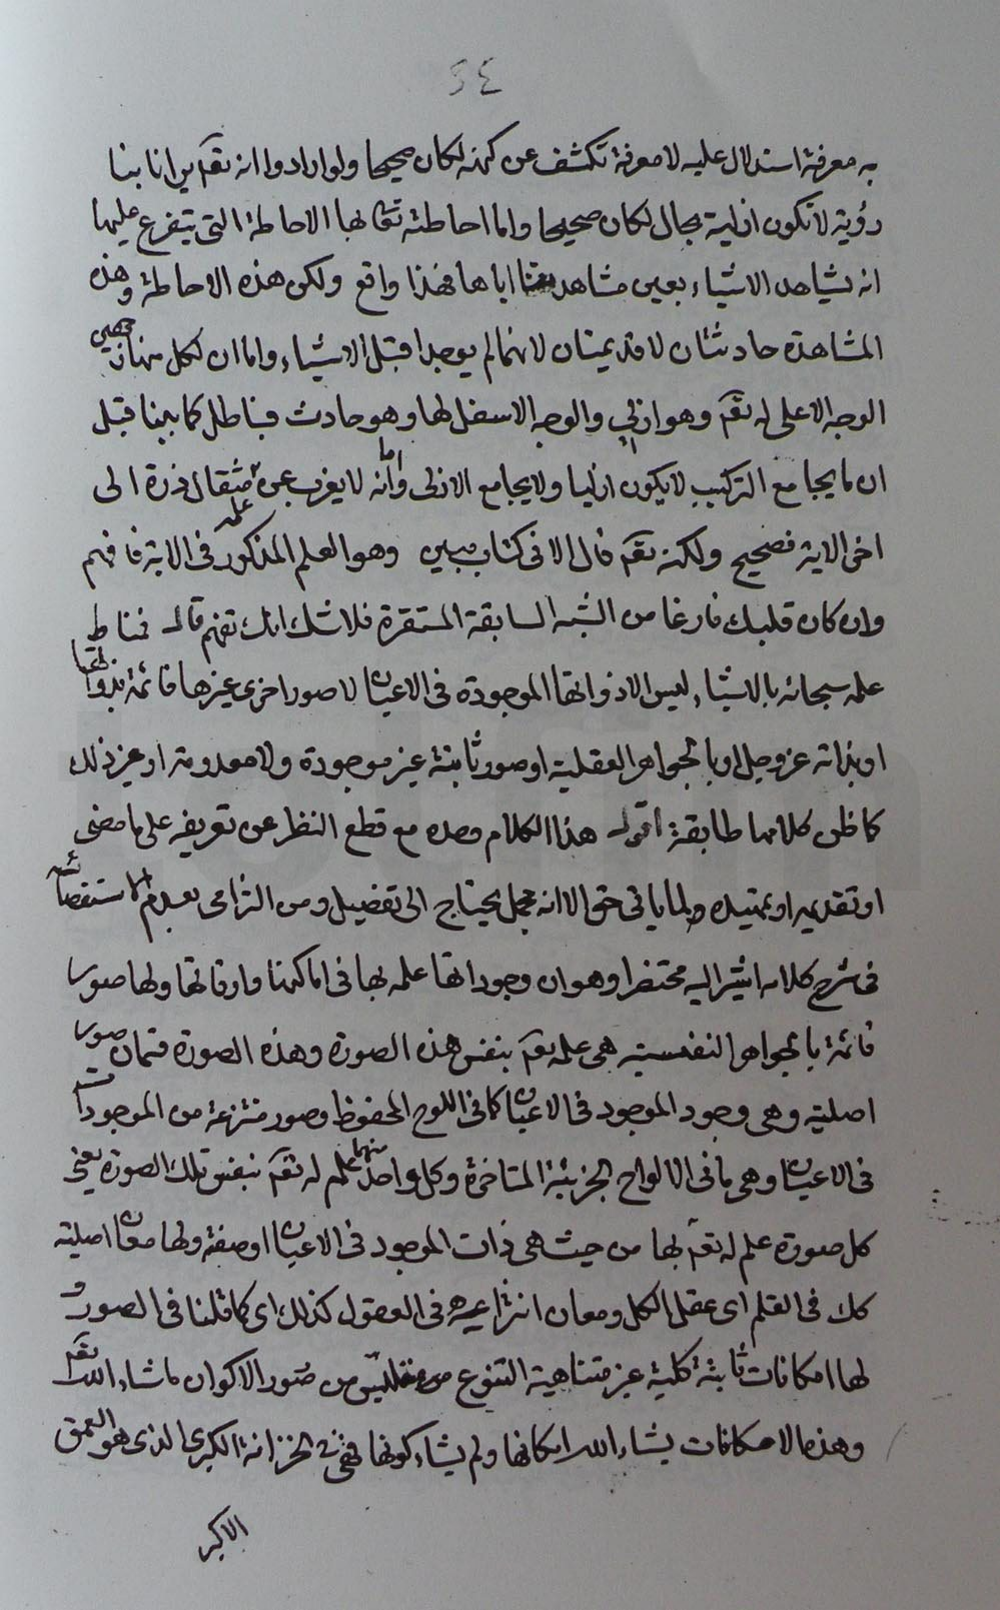 ٣٤
به معرفة استدلال عليه لا معرفة تكشف عن كنهه لكان صحيحا ولو ارادوا انه تقم يرانا بنا
رؤية لا تكون ازلية بحال لكان صحيحا واما احاطته تقم بها الاحاطة التي يتفرع عليها
انه يشاهد الاشياء بعين مشاهدتنا اياها فهذا واقع ولكن هذه الاحاطة وهذه
المشاهدة حادثتان لا قديمتان لانهما لم يوجدا قبل الاشياء واما ان لكل منها وجهين
الوجه الاعلى له تقم وهو ازلي والوجه الاسفل لها وهو حادث فباطل كما بينا قبل
ان ما يجامع التركيب لا يكون ازليا ولا يجامع الازلى واما انه لا يعزب عن علمه مثقال ذرة الى
اخر الاية فصحيح ولكنه تقم قال الا فى كتاب مبين وهو العلم المذكور فى الاية فافهم
وان كان قلبك فارغا من الشبه السابقة المستقرة فلا شك انك تفهم قال فمناط
علمه سبحانه بالاشياء ليس الا ذواتها الموجودة فى الاعيان لا صور اخرى غيرها قائمة بذواتها
او بذاته عز وجل او بالجواهر العقلية او صور ثابتة غير موجودة ولا معدومة او غير ذلك
كما ظن كلا منها طائفة اقول هذا الكلام وحده مع قطع النظر عن تعريفه على ما مضى
او تقديره او تمثيله ولما ياتى حق الا انه مجمل يحتاج الى تفصيل ومن التزامى بعدم الاستقصائه
فى شرح كلامه اشير اليه مختصرا وهو ان وجوداتها علمه بها فى اماكنها واوقاتها ولها صور
قائمة بالجواهر النفسية هى علمه تقم بنفس هذه الصورة وهذه الصورة قسمان صور
اصلية وهى وجود الموجود فى الاعيان كما فى اللوح المحفوظ وصور منتزعة من الموجودات
فى الاعيان وهى ما فى الالواح الجزئية المتاخرة وكل واحد منهما علم له تقم بنفس تلك الصورة يعنى
كل صورة علم له تقم بها من حيث هى ذات الموجود فى الاعيان او صفة ولها معان اصلية
كك فى القلم اى عقل الكل ومعان انتزاعية فى العقول كذلك اى كما قلنا فى الصور و
لها امكانات ثابتة كلية غير متناهية التنوع من صور الاكوان ما شاء الله تقم
وهذه الامكانات يشاء الله امكانها ولم يشاء كونها فهى فى الخزانة الكبرى الذى هو العمق
الاكبر